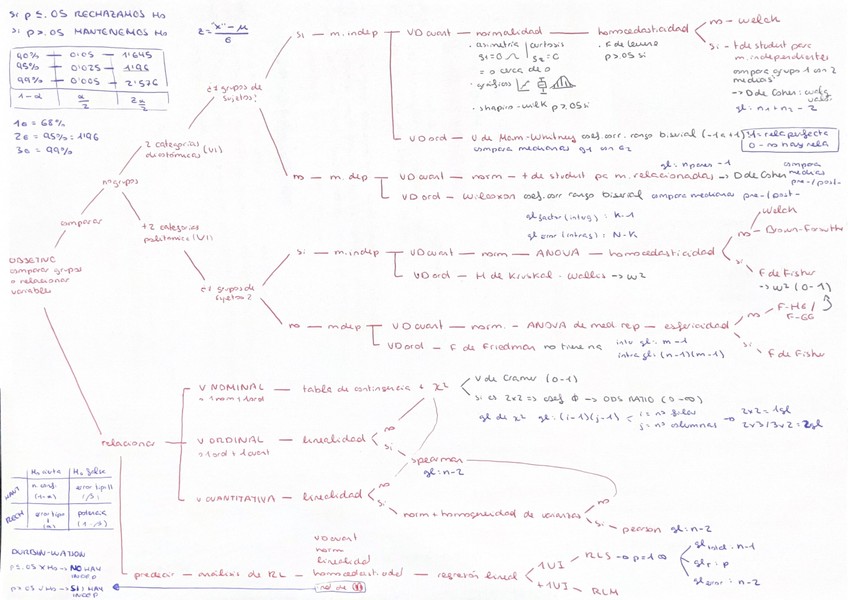 si p ≤ .05 RECHAZAMOS Ho
si p > .05 MANTENEMOS Ho
90% — 0'05 — 1'645
95% — 0'025 — 1'96
99% — 0'005 — 2'576
1-α α/2 Zα/2
1σ = 68%
2σ = 95% = 1'96
3σ = 99%
z = "x" - μ / σ
OBJETIVO
comparar grupos
o relacionar
variables
comparar
nº grupos
2 categorías
dicotómicas (VI)
+2 categorías
politómica (VI)
¿≠ grupos de
sujetos?
si — m. indep
VD cuant — normalidad — homocedasticidad
· asimetría | curtosis
g1=0 g2=0
= o cerca de 0
· gráficos
· shapiro-wilk p > .05 si
· F de Levene
p > .05 si
no — welch
si — t de student para
m. independientes
compara grupo 1 con 2
medias
→ D de Cohen
gl: n1+n2-2
VD ord — U de Mann-Whitney coef. corr. rango biserial (-1 a +1)
compara medianas g1 con g2
1 = rela perfecta
0 - no hay rela
no — m. dep
VD cuant — norm — t de student pa m. relacionadas → D de Cohen
gl: npares - 1
compara
medias
pre-/post-
VD ord — Wilcoxon coef. corr rango biserial compara medianas pre-/post-
gl factor (intergr): K-1
gl error (intragr): N-K
¿≠ grupos de
sujetos?
si — m. indep
VD cuant — norm — ANOVA — homocedasticidad
no
welch
Brown-Forsythe
si
F de Fisher
→ ω² (0-1)
VD ord — H de Kruskal-Wallis → ω²
no — m dep
VD cuant — norm. — ANOVA de med rep — esfericidad
no — F-HG /
F-GG
si
F de Fisher
VD ord — F de Friedman no tiene na
inter gl: m-1
intra gl: (n-1)(m-1)
relacionar
V NOMINAL — tabla de contingencia & χ²
o 1 nom + 1 ord
V de Cramer (0-1)
si es 2x2 => coef Φ → ODS RATIO (0-∞)
gl de χ² gl: (i-1)(j-1)
i = nº filas
j = nº columnas
2x2 = 1gl
2x3/3x2 = 2gl
V ORDINAL — linealidad
o 1 ord + 1 cuant
no
si
spearman
gl: n-2
V. CUANTITATIVA — linealidad
no
si
norm + homogeneidad de varianzas
no
si — pearson gl: n-2
Ho cierta Ho falsa
MANT n. conf. (1-α) error tipo II (β)
RECH error tipo I (α) potencia (1-β)
predecir — análisis de RL
VD cuant
norm
linealidad
homocedasticidad
ind. de
regresión lineal
1VI — RLS
+1VI — RLM
gl total: n-1
gl r: p
gl error: n-2
DURBIN-WATSON
p ≤ .05 X Ho → NO HAY
INDEP
p > .05 ✓ Ho → SI HAY
INDEP